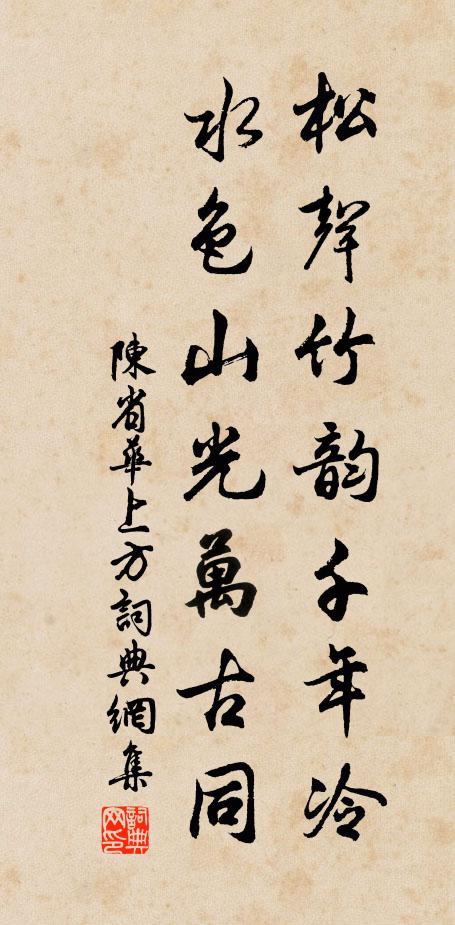 松聲竹韵千年冷
水色山光萬古同
陳省華上方詞典網集
詞典网印